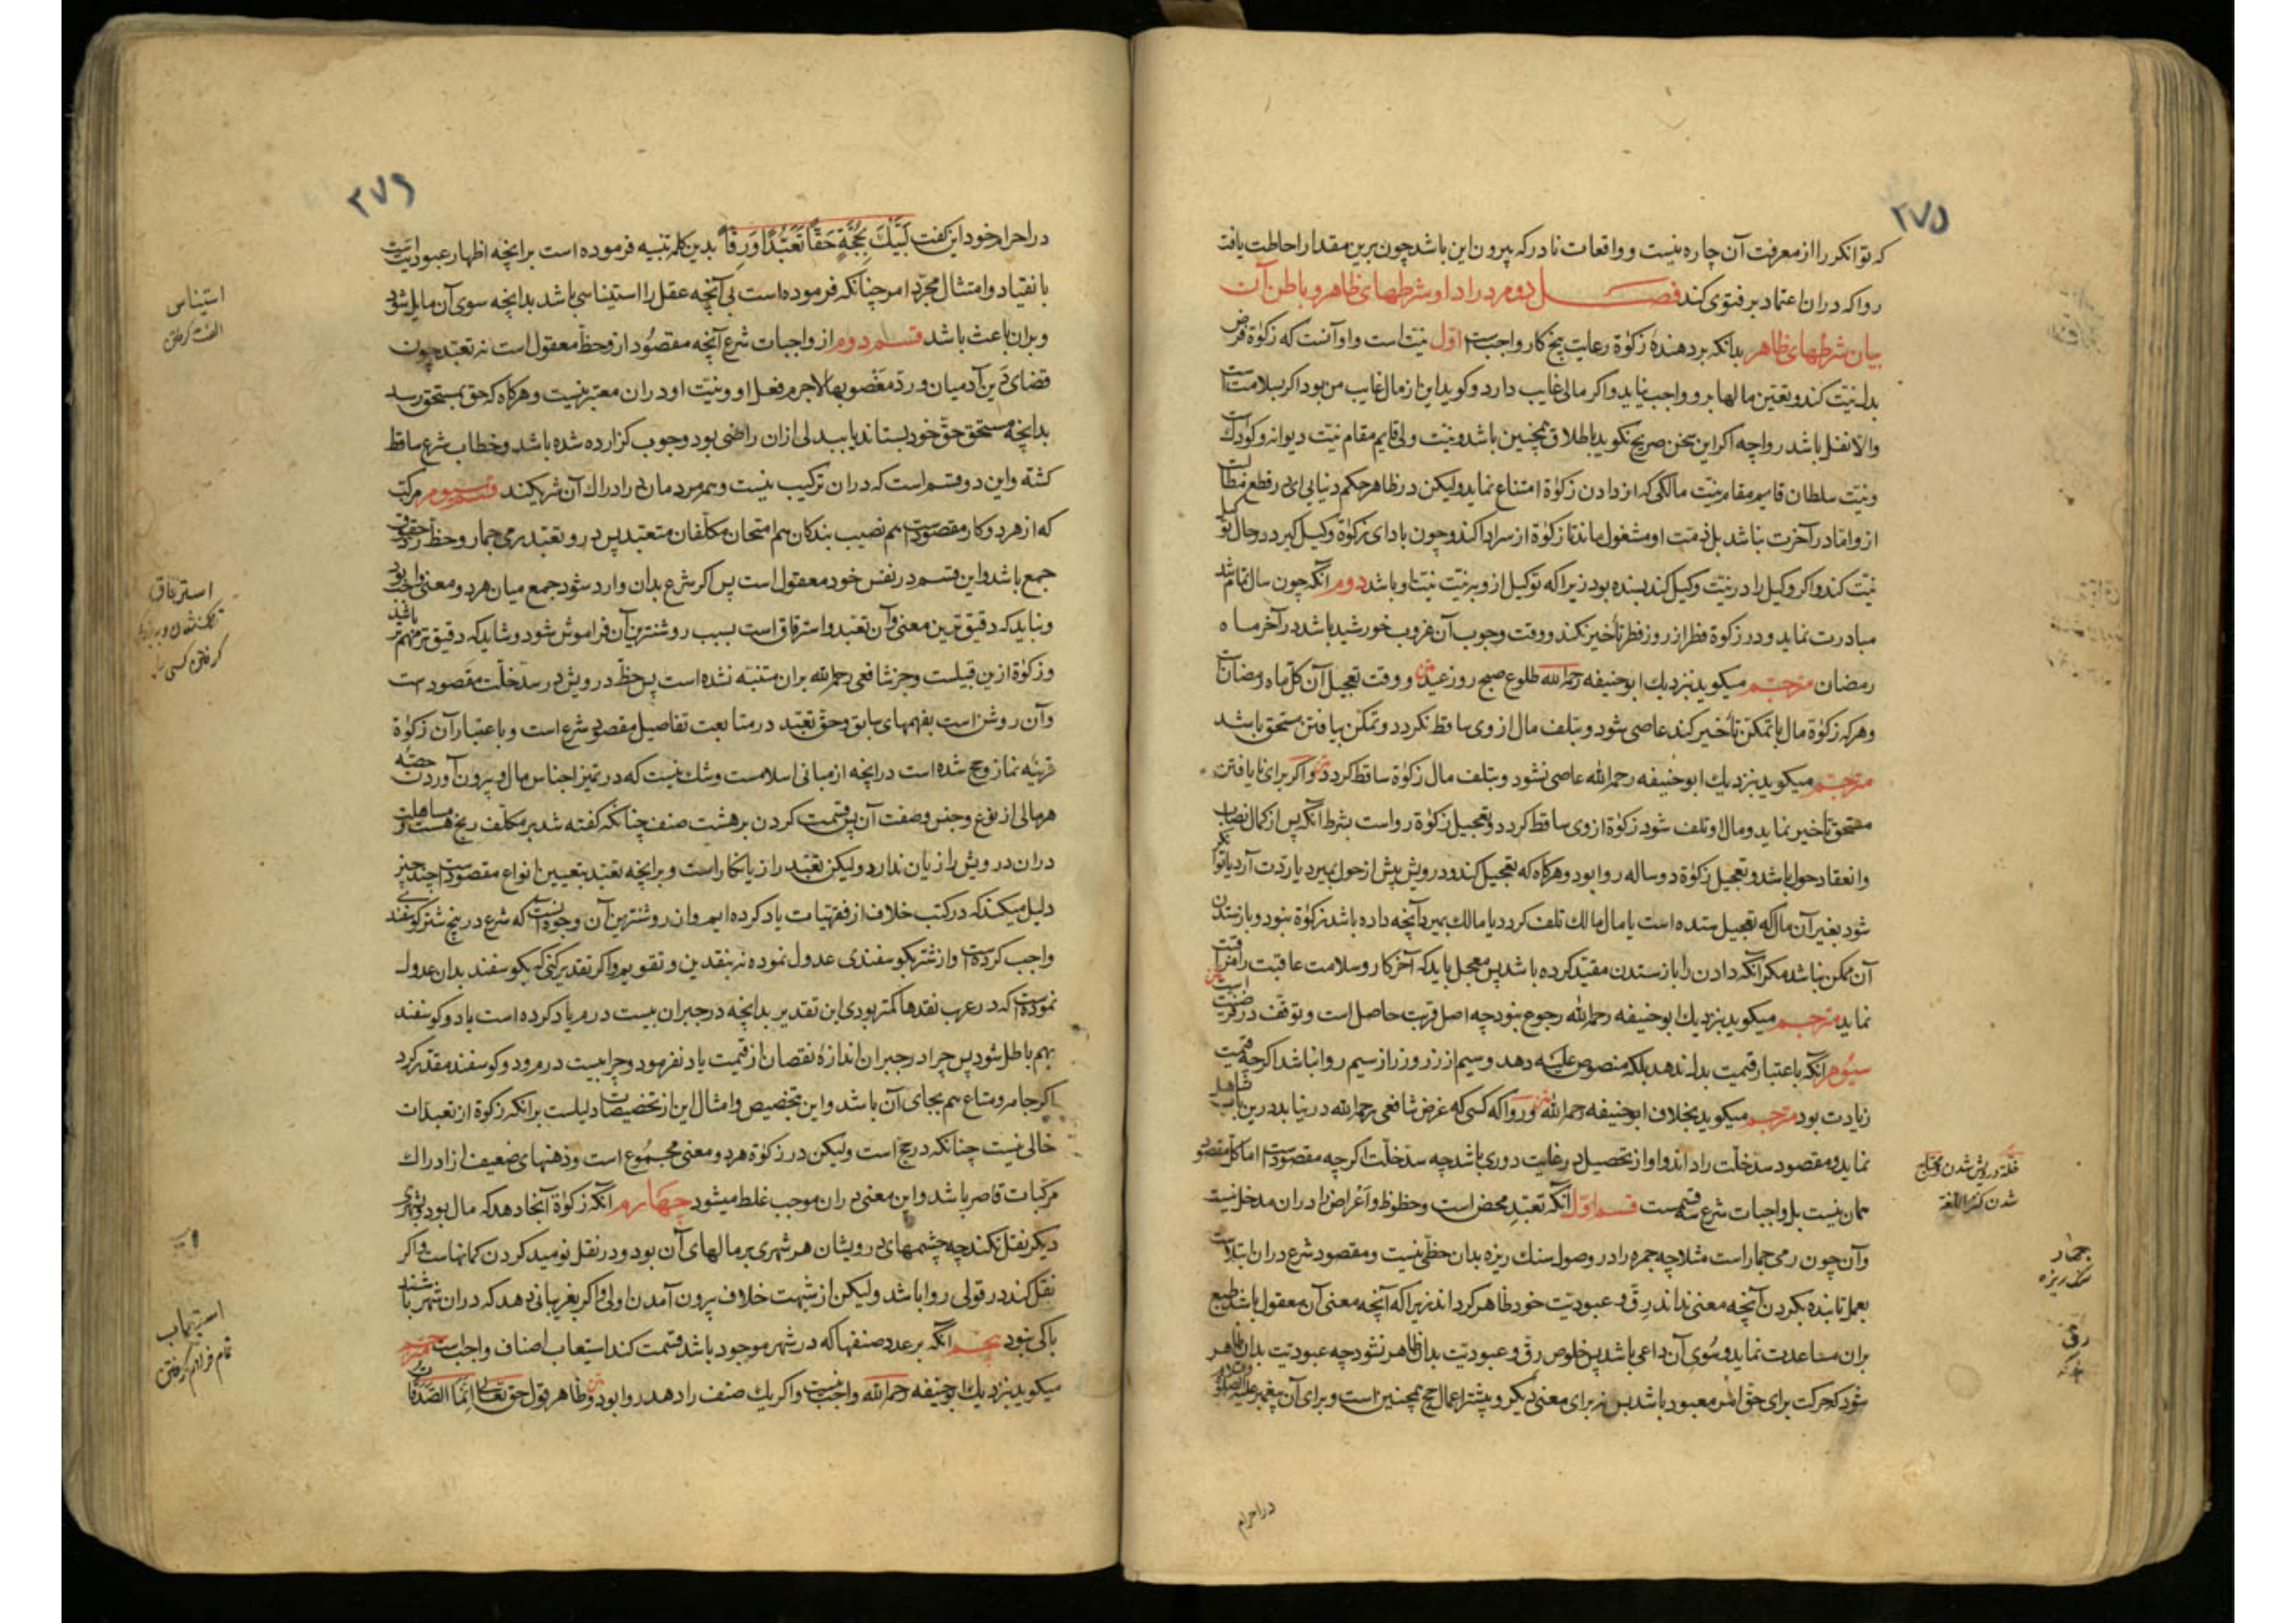 ۲۷۵
که توانگر را از معرفت آن چاره نیست و واقعات نادر که بیرون این باشد چون برین مقدار احاطت یافت
روا که دران اعتماد بر فتوی کند فصل دوم در ادا و شرطهای ظاهر و باطن آن
بیان شرطهای ظاهر بدانکه بر دهندهٔ زکوة رعایت پنج کار واجبست اول نیت است و او آنست که زکوة فرض
بدل نیت کند و تعیین مالها برو واجب نیاید و اگر مالی غایب دارد و گوید این از مال غایب من بود اگر بسلامت است
والا نفل باشد رواچه اگر این سخن صریح نگوید باطلاق همچنین باشد و نیت ولی قایم مقام نیت دیوانه و کودک است
و نیت سلطان قایم مقام نیت مالکی که از دادن زکوة امتناع نماید ولیکن در ظاهر حکم دنیا یی ای در قطع مطالبت
از و اما در آخرت نباشد بل ذمت او مشغول ماند تا زکوة از سر ادا کند و چون بادای زکوة وکیل گیرد در حال توکیل
نیت کند و اگر وکیل را در نیت وکیل کند بسنده بود زیرا که توکیل ازو بر نیت نیت او باشد دوم آنکه چون سال تمام شد
مبادرت نماید و در زکوة فطر از روز فطر تأخیر نکند و وقت وجوب آن غروب خورشید باشد در آخر ماه
رمضان مترجم میگوید نزدیک ابوحنیفه رحمه الله طلوع صبح روز عید و وقت تعجیل آن کل ماه رمضان است
و هرکه زکوة مال با تمکن تأخیر کند عاصی شود و بتلف مال از وی ساقط نگردد و تمکن بیافتن مستحق باشد
مترجم میگوید نزدیک ابوحنیفه رحمه الله عاصی نشود و بتلف مال زکوة ساقط گردد و اگر برای نایافتن
مستحق تأخیر نماید و مال او تلف شود زکوة از وی ساقط گردد و تعجیل زکوة رواست بشرط آنکه پس از کمال نصاب
و انعقاد حول باشد و تعجیل زکوة دو ساله روا بود و هرگاه که تعجیل کند و درویش پیش از حول بمیرد یا ردت آرد یا توانگر
شود بغیر آن مال که تعجیل ستده است یا مال مالک تلف گردد یا مالک بمیرد آنچه داده باشد زکوة نبود و بازستدن
آن ممکن نباشد مگر آنکه دادن را باز ستدن مقید کرده باشد پس معجل باید که آخر کار و سلامت عاقبت را مراقبت
نماید مترجم میگوید نزدیک ابوحنیفه رحمه الله رجوع نبود چه اصل قربت حاصل است و توقف در فرضیت است
سیوم آنکه باعتبار قیمت بدل ندهد بلکه منصوص علیه دهد و سیم از زر و زر از سیم روا نباشد اگرچه قیمت
زیادت بود مترجم میگوید بخلاف ابوحنیفه رحمه الله و روا که کسی که غرض شافعی رحمه الله در نیابد درین باب تساهل
نماید و مقصود سدخلت را داند و او از تحصیل در غایت دوری باشد چه سدخلت اگرچه مقصودست اما کل مقصود
همان نیست بل واجبات شرع سه قسمست قسم اول آنکه تعبد محض است و حظوظ و اغراض را دران مدخل نیست
و آن چون رمی جمار است مثلا چه جمره را در وصول سنگ ریزه بدان حظی نیست و مقصود شرع دران ابتلاست
بعمل تا بنده بکردن آنچه معنی نداند رق و عبودیت خود ظاهر گرداند زیرا که آنچه معنی آن معقول باشد طبع
بران مساعدت نماید و سوی آن داعی باشد پس خلوص رق و عبودیت بدان ظاهر نشود چه عبودیت بدان ظاهر
شود که حرکت برای حق امر معبود باشد بس نه برای معنی دیگر و بیشتر اعمال حج همچنین است و برای آن پیغمبر علیه الصلوة
در احرام
خلة درویش شدن و محتاج
شدن کنز اللغة
جمار
سنگ ریزه
رق
۲۷۶
در احرام خود این گفت لبیک بحجة حقا تعبدا و رقا بدین کلمه تنبیه فرموده است برانچه اظهار عبودیت است
بانقیاد و امتثال مجرد امر چنانکه فرموده است بی آنچه عقل را استیناسی باشد بدانچه سوی آن مایل شود
و بران باعث باشد قسم دوم از واجبات شرع آنچه مقصود ازو حظ معقول است نه تعبد چون
قضای دین آدمیان و رد مغصوبها لاجرم فعل او و نیت او دران معتبر نیست و هرگاه که حق بمستحق رسد
بدانچه مستحق حق خود بستاند یا ببدلی ازان راضی بود وجوب گزارده شده باشد و خطاب شرع ساقط
گشته و این دو قسم است که دران ترکیب نیست و همه مردمان در ادراک آن شریکند قسم سیوم مرکب
که از هر دو کار مقصودست هم نصیب بندگان هم امتحان مکلفان متعبد پس درو تعبد رمی جمار و حظ رد حقوق
جمع باشد و این قسم در نفس خود معقول است پس اگر شرع بدان وارد شود جمع میان هر دو معنی واجب بود
و نباید که دقیق‌ترین معنی و آن تعبد و استرقاق است بسبب روشنترین آن فراموش شود و شاید که دقیق‌تر مهمتر باشد
و زکوة ازین قبیلست و جز شافعی رحمه الله بران متنبه نشده است پس حظ درویش در سدخلت مقصود است
و آن روشن است بفهمهای سابق و حق تعبد در متابعت تفاصیل مقصود شرع است و باعتبار آن زکوة
قرینه نماز و حج شده است در انچه از مبانی اسلامست و شک نیست که در تمیز اجناس مال و بیرون آوردن حصه
هر مالی از نوع و جنس و صفت آن پس قسمت کردن بر هشت صنف چنانکه گفته شد بر مکلف رنج هست و مساهلت
دران درویش را زیان ندارد ولیکن تعبد را زیانکار است و برانچه تعبد بتعیین انواع مقصودست چند چیز
دلیل میکند که در کتب خلاف از فقهیات یاد کرده ایم و ان روشنترین آن وجوه آنست که شرع در پنج شتر گوسفندی
واجب کردست و از شتر بگوسفندی عدول نموده نه بنقدین و تقویم و اگر تقدیر کنی که بگوسفند بدان عدول
نمودست که در عرب نقدها کمتر بودی این تقدیر بدانچه در جبران بیست درم یاد کرده است با دو گوسفند
بهم باطل شود پس چرا در جبران اندازهٔ نقصان از قیمت یاد نفرمود و چرا بیست درم و دو گوسفند مقدر کرد
اگر جامه و متاع هم بجای آن باشد و این تخصیص و امثال این از تخصیصات دلیلست برانکه زکوة از تعبدات
خالی نیست چنانکه در حج است ولیکن در زکوة هر دو معنی مجموع است و ذهنهای ضعیف از ادراک
مرکبات قاصر باشد و این معنی دران موجب غلط میشود چهارم آنکه زکوة آنجا دهد که مال بود بشهری
دیگر نقل نکند چه چشمهای درویشان هر شهری بر مالهای آن بود و در نقل نومید کردن گمانهاست و اگر
نقل کند در قولی روا باشد ولیکن از شبهت خلاف بیرون آمدن اولی و اگر بغریبانی دهد که دران شهر باشند
باکی نبود پنجم آنکه بر عدد صنفها که در شهر موجود باشد قسمت کند استیعاب اصناف واجب است مترجم
میگوید نزدیک ابوحنیفه رحمه الله واجب نیست و اگر یک صنف را دهد روا بود و ظاهر قول حق تعالی انما الصدقات
استیناس
الفت گرفتن
استرقاق
گرفتن کسی را
استیعاب
تمام فراهم گرفتن